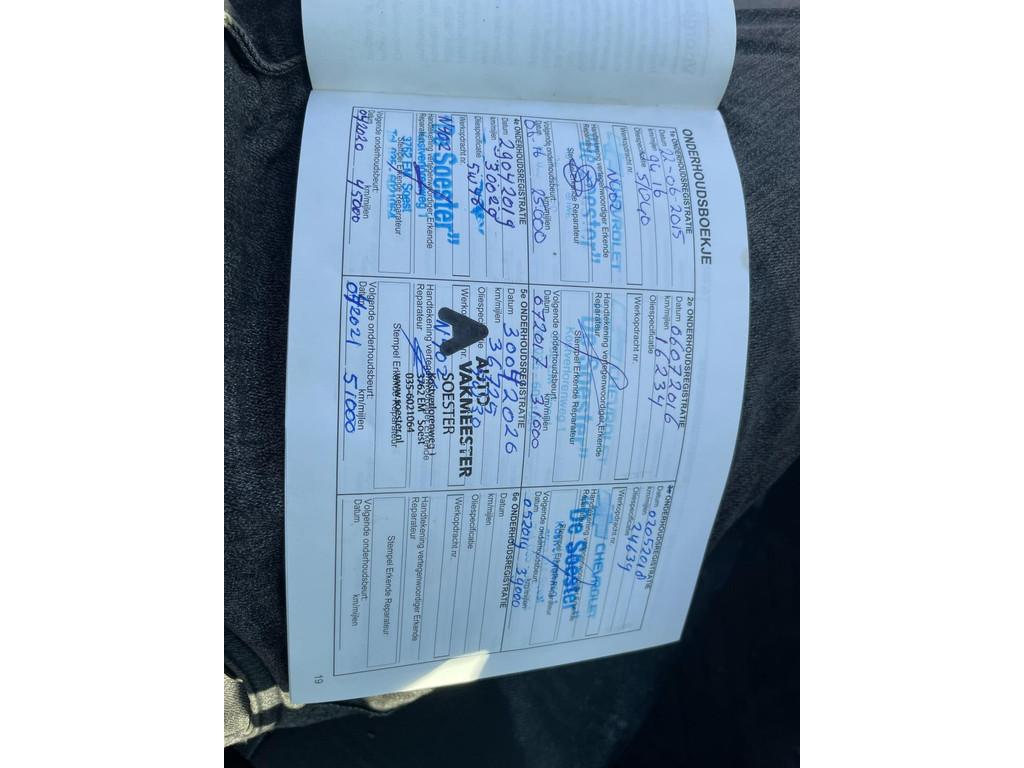 ONDERHOUDSBOEKJE
1e ONDERHOUDSREGISTRATIE
Datum 22-06-2015
km/mijlen 9416
Oliespecificatie 5W40
Werkopdracht nr.
Handtekening vertegenwoordiger Erkende
Reparateur
CHEVROLET
Stempel Erkende Reparateur
Volgende onderhoudsbeurt:
Datum km/mijlen
25000
2e ONDERHOUDSREGISTRATIE
Datum 06072016
km/mijlen 16234
Oliespecificatie
Werkopdracht nr.
Handtekening vertegenwoordiger Erkende
Reparateur
CHEVROLET
"De Soester"
Kostverlorenweg 1
Stempel Erkende Reparateur
Volgende onderhoudsbeurt:
Datum km/mijlen
072017 31000
3e ONDERHOUDSREGISTRATIE
Datum 02052018
km/mijlen
Oliespecificatie
Werkopdracht nr.
CHEVROLET
"De Soester"
Volgende onderhoudsbeurt:
Datum km/mijlen
052019 39000
4e ONDERHOUDSREGISTRATIE
Datum 29042019
km/mijlen 30020
Oliespecificatie
Werkopdracht nr.
N902
Handtekening vertegenwoordiger Erkende
Reparateur
"De Soester"
Kostverlorenweg 1
3762 EM Soest
Stempel Erkende Reparateur
Volgende onderhoudsbeurt:
Datum km/mijlen
042020 45000
5e ONDERHOUDSREGISTRATIE
Datum 30042020
km/mijlen 36725
Oliespecificatie
Werkopdracht nr.
N902
AUTO
VAKMEESTER
SOESTER
Handtekening vertegenwoordiger Erkende
Reparateur
Kostverlorenweg 1
3762 EM Soest
035-6021064
www.soester.nl
Stempel Erkende Reparateur
Volgende onderhoudsbeurt:
Datum km/mijlen
042021 51000
6e ONDERHOUDSREGISTRATIE
Datum
km/mijlen
Oliespecificatie
Werkopdracht nr.
Handtekening vertegenwoordiger Erkende
Reparateur
Stempel Erkende Reparateur
Volgende onderhoudsbeurt:
Datum km/mijlen
19